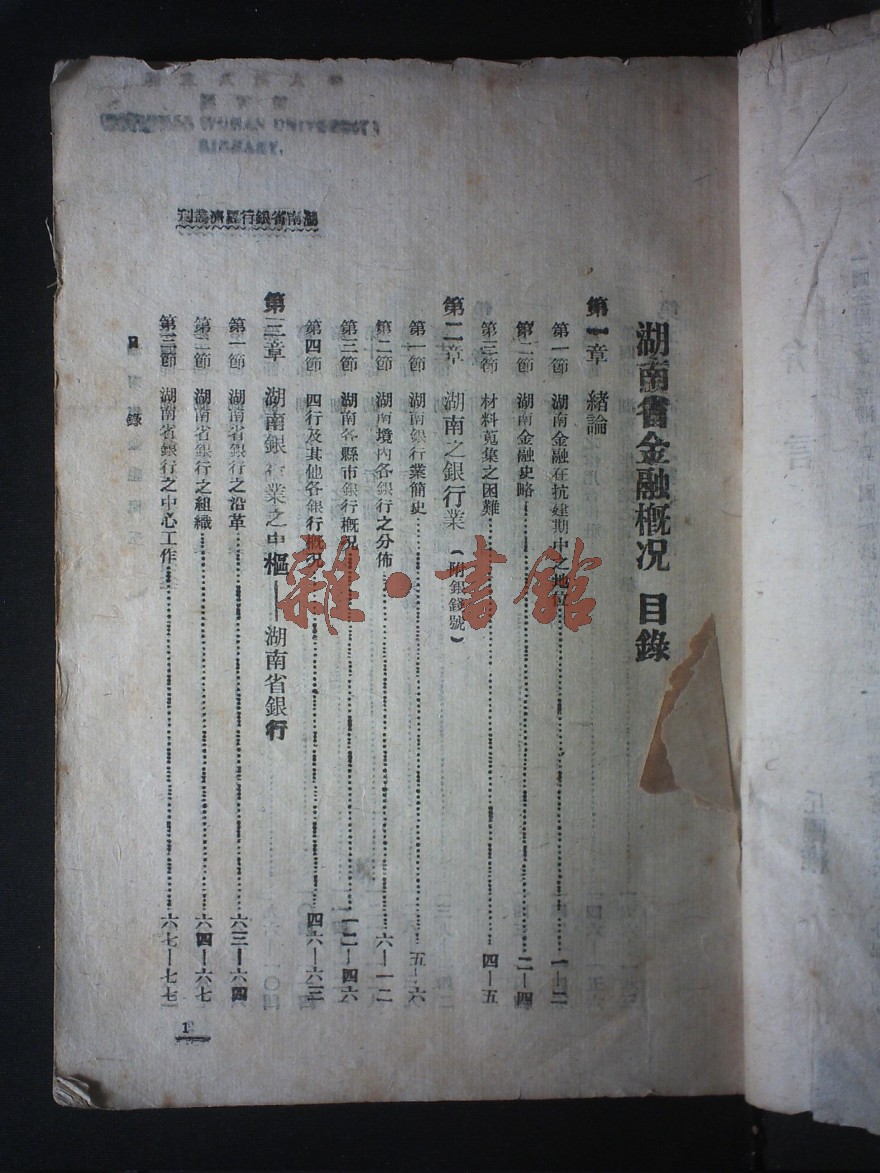 UNIVERSITY
湖南省銀行經濟叢刊
湖南省金融概况 目錄
第一章 緒論
第一節 湖南金融在抗建期中之地位 一—二
第二節 湖南金融史略 二—四
第三節 材料蒐集之困難 四—五
第二章 湖南之銀行業(附銀錢號)
第一節 湖南銀行業簡史 五—六
第二節 湖南境內各銀行之分佈 六—一二
第三節 湖南各縣市銀行概况 一二—四六
第四節 四行及其他各銀行概况 四六—六三
第三章 湖南銀行業之中樞——湖南省銀行
第一節 湖南省銀行之沿革 六三—六四
第二節 湖南省銀行之組織 六四—六七
第三節 湖南省銀行之中心工作 六七—七七
目錄
1
雜·書館